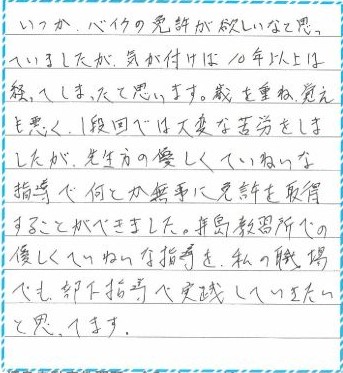 いつか、バイクの免許が欲しいなと思っ
ていましたが、気が付けば10年以上は
経ってしまったと思います。歳を重ね、覚え
も悪く、1段回では大変な苦労をしま
したが、先生方の優しくていねいな
指導で何とか無事に免許を取得
することができました。井島教習所での
優しくていねいな指導を、私の職場
でも、部下指導で実践していきたい
と思ってます。